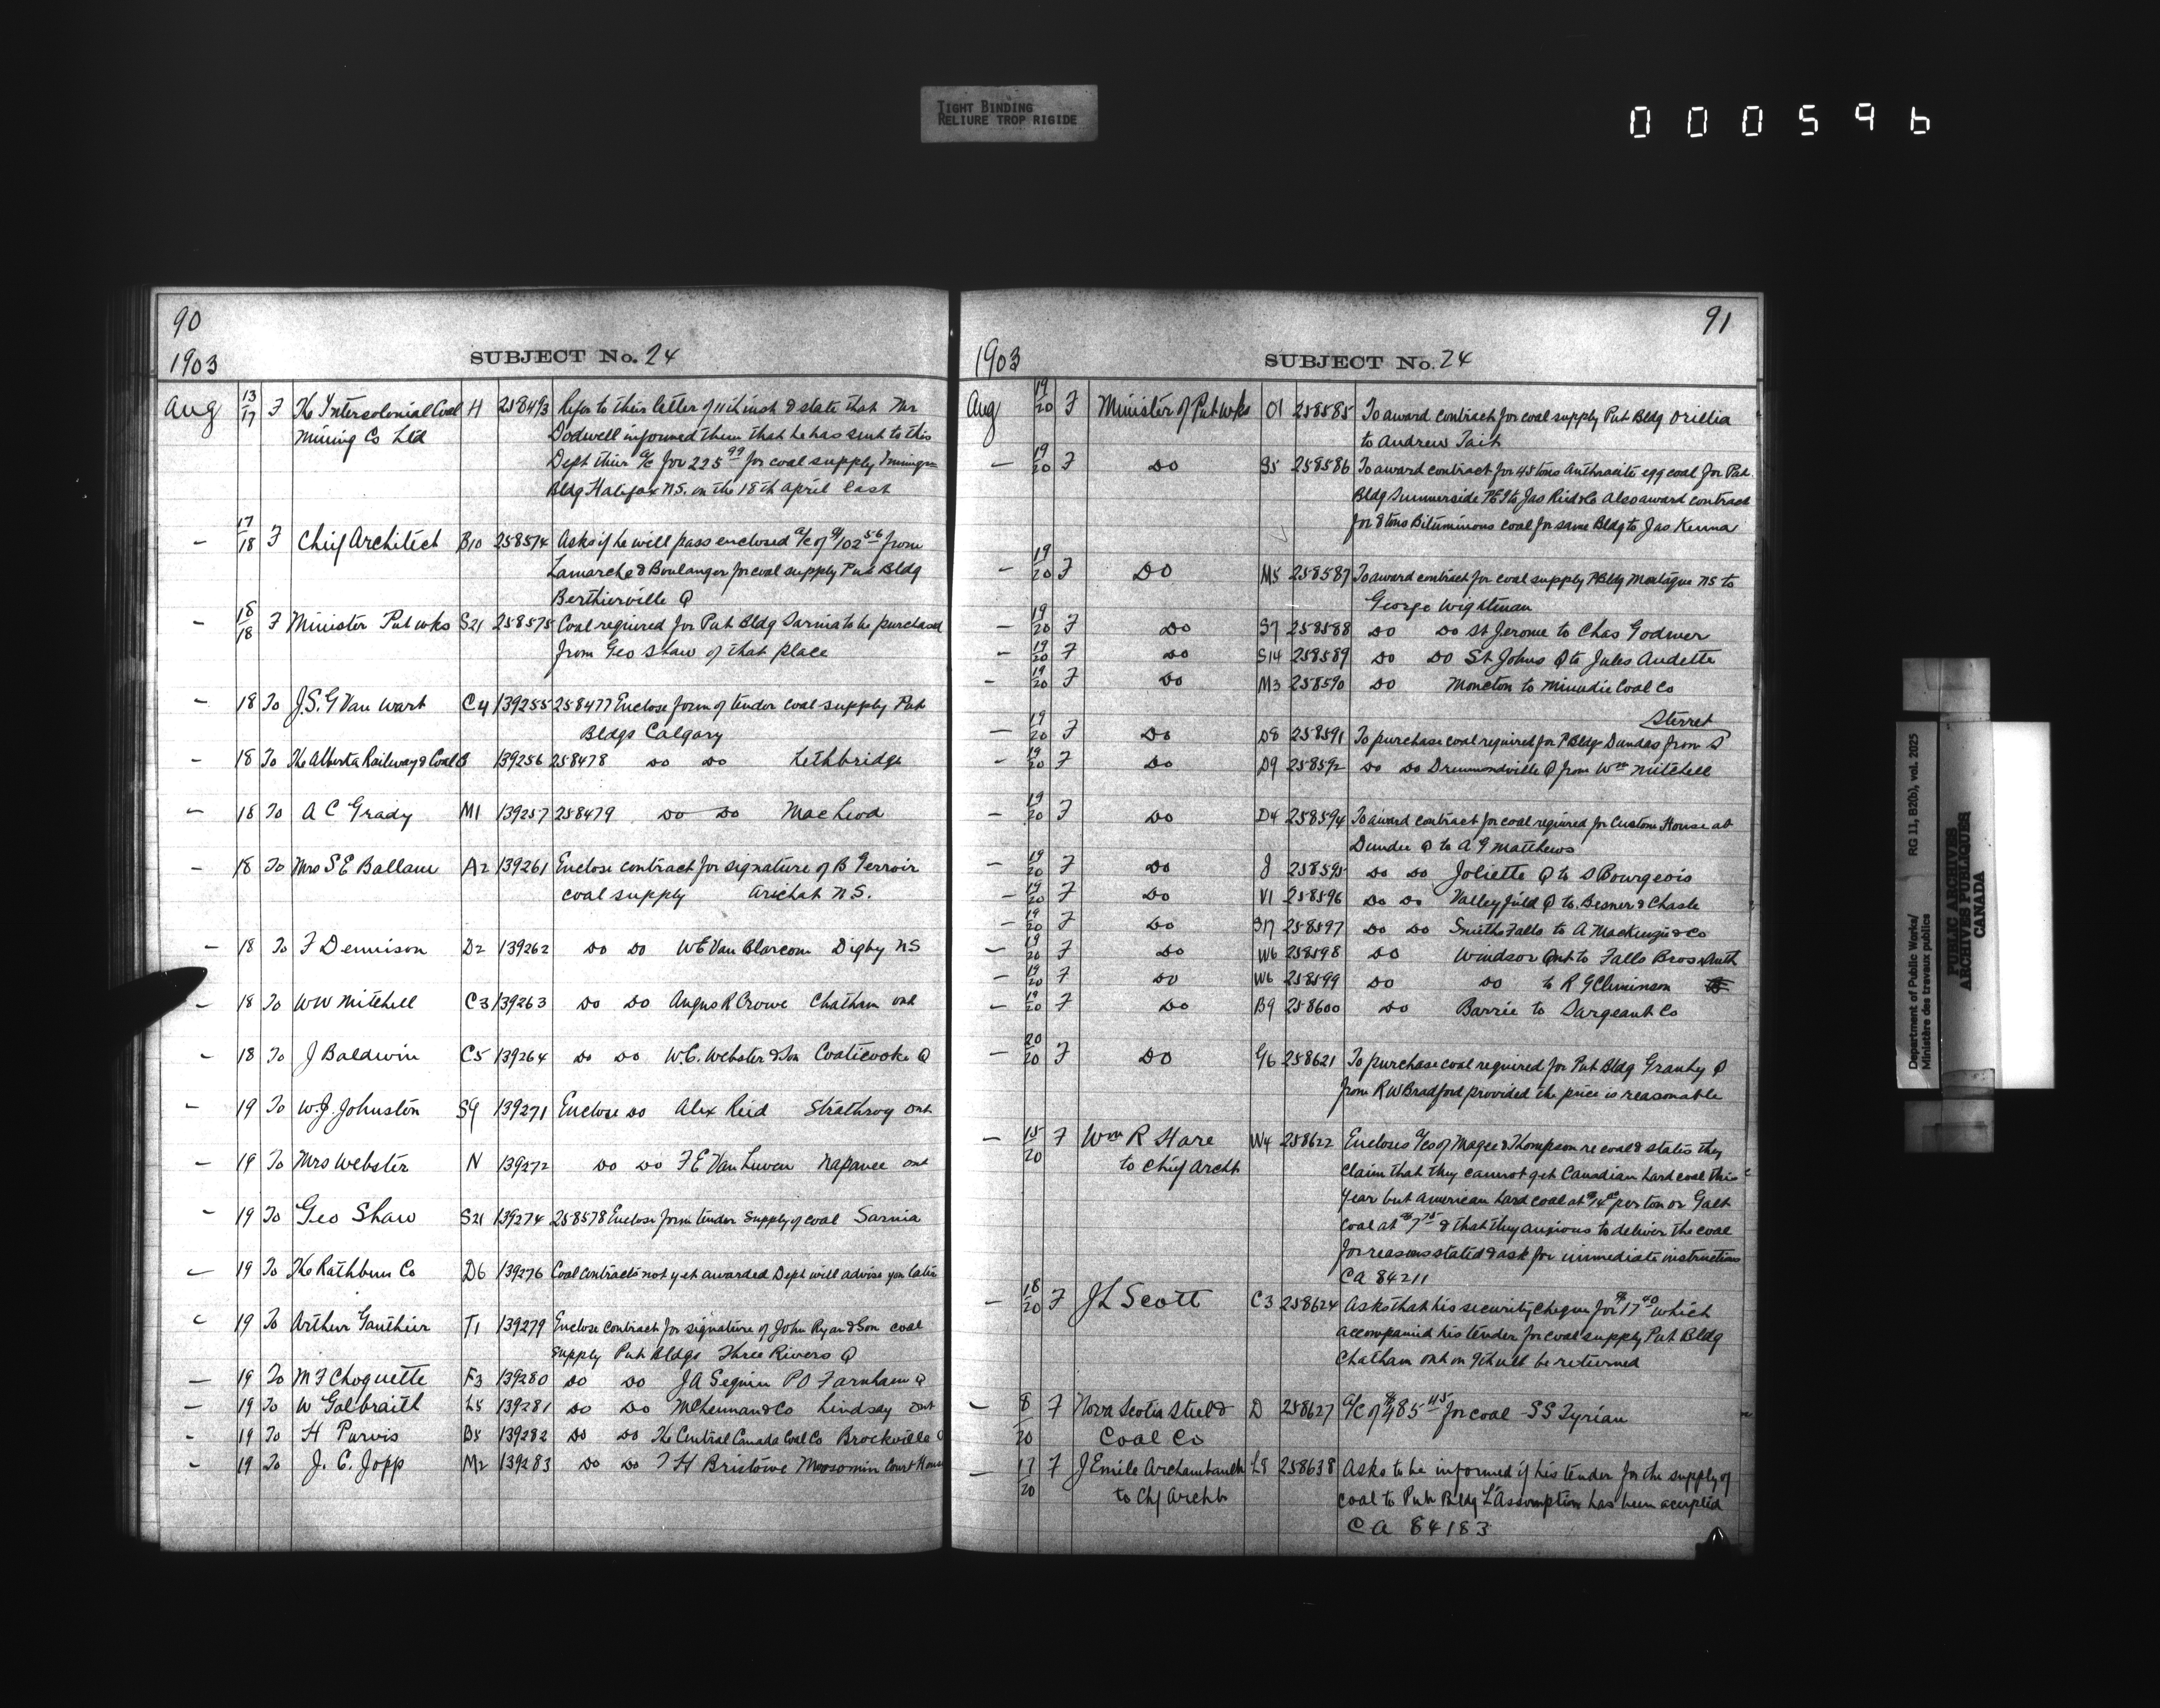 TIGHT BINDING
RELIURE TROP RIGIDE
000596
90
1903 SUBJECT No. 24
Aug 13/17 F The Intercolonial Coal H 258493 Refer to their letter of 11th inst & state that Mr
Mining Co Ltd Dodwell informed them that he has sent to this
Dept their a/c for 225 99 for coal supply Immigrn
Bldg Halifax N.S. on the 18th April last
— 17/18 F Chief Architect B10 258574 Asks if he will pass enclosed a/c of $102 56 from
Lamarche & Boulanger for coal supply Pub Bldg
Berthierville Q
— 18/18 F Minister Pub wks S21 258575 Coal required for Pub Bldg Sarnia to be purchased
from Geo Shaw of that place
— 18 To J.S.G Van Wart C4 139255 258477 Enclose form of tender coal supply Pub
Bldgs Calgary
— 18 To The Alberta Railway & Coal 139256 258478 Do Do Lethbridge
— 18 To A C Grady M1 139257 258479 Do Do Macleod
— 18 To Mrs S E Ballam A2 139261 Enclose contract for signature of B Terroir
coal supply Arichat N.S.
— 18 To F Dennison D2 139262 Do Do W E Van Blarcom Digby NS
— 18 To WW Mitchell C3 139263 Do Do Angus R Crowe Chatham Ont
— 18 To J Baldwin C5 139264 Do Do W.C. Webster & Son Coaticooke Q
— 19 To W.J. Johnston S9 139271 Enclose Do Alex Reid Strathroy Ont
— 19 To Mrs Webster N 139272 Do Do F E Van Luven Napanee Ont
— 19 To Geo Shaw S21 139274 258578 Enclose form tender supply of coal Sarnia
— 19 To The Rathbun Co D6 139276 Coal contracts not yet awarded Dept will advise you later
— 19 To Arthur Gauthier T1 139279 Enclose contract for signature of John Ryan & Son coal
supply Pub Bldgs Three Rivers Q
— 19 To M F Choquette F3 139280 Do Do J A Seguin PO Farnham Q
— 19 To W Galbraith L5 139281 Do Do McLennan & Co Lindsay Ont
— 19 To H Purvis B5 139282 Do Do The Central Canada Coal Co Brockville
— 19 To J. C. Jopp M2 139283 Do Do H Bristowe Moosomin Court House
91
1903 SUBJECT No. 24
Aug 19/20 F Minister of Pub wks O1 258585 To award contract for coal supply Pub Bldg Orillia
to Andrew Tait
— 19/20 F Do S5 258586 To award contract for 45 tons Anthracite egg coal for Pub.
Bldg Summerside PEI to Jas Reid & Co Also award contract
for 8 tons Bituminous coal for same Bldg to Jas Kenna
— 19/20 F Do M5 258587 To award contract for coal supply P Bldg Montague NS to
George Wightman
— 19/20 F Do S7 258588 Do Do St Jerome to Chas Godmer
— 19/20 F Do S14 258589 Do Do St Johns Q to Jules Audette
— 19/20 F Do M3 258590 Do Moncton to Minudie Coal Co
Sterret
— 19/20 F Do D8 258591 To purchase coal required for P Bldg Dundas from S
— 19/20 F Do D9 258592 Do Do Drummondville Q from Wm Mitchell
— 19/20 F Do D4 258594 To award contract for coal required for Custom House at
Dundee Q to A G Matthews
— 19/20 F Do J 258595 Do Do Joliette Q to S Bourgeois
— 19/20 F Do V1 258596 Do Do Valleyfield Q to Besner & Chasle
— 19/20 F Do S17 258597 Do Do Smiths Falls to A Mackenzie & Co
— 19/20 F Do W6 258598 Do Windsor Ont to Falls Bros Anth
— 19/20 F Do W6 258599 Do Do to R G Climinson
— 19/20 F Do B9 258600 Do Barrie to Sargeant Co
— 20/20 F Do G6 258621 To purchase coal required for Pub Bldg Granby Q
from R W Bradford provided the price is reasonable
— 15/20 F Wm R Stare W4 258622 Encloses a/cs of Magee & Thompson re coal & states they
to Chief Archt claim that they cannot get Canadian hard coal this
year but American hard coal at $14 00 per ton or Galt
coal at $7 75 & that they anxious to deliver the coal
for reasons stated & ask for immediate instructions
CA 84211
— 18/20 F J L Scott C3 258624 Asks that his security cheque for $17 40 which
accompanied his tender for coal supply Pub Bldg
Chatham Ont on 9th ult be returned
— 8/20 F Nova Scotia Steel & D 258627 a/c of $485 45 for coal - SS Tyrian
Coal Co
— 17/20 F J Emile Archambault L8 258638 Asks to be informed if his tender for the supply of
to Chf Archt coal to Pub Bldg L'Assomption has been accepted
CA 84183
Department of Public Works/ RG 11, B2(b), vol. 2025
Ministère des travaux publics
PUBLIC ARCHIVES
ARCHIVES PUBLIQUES
CANADA